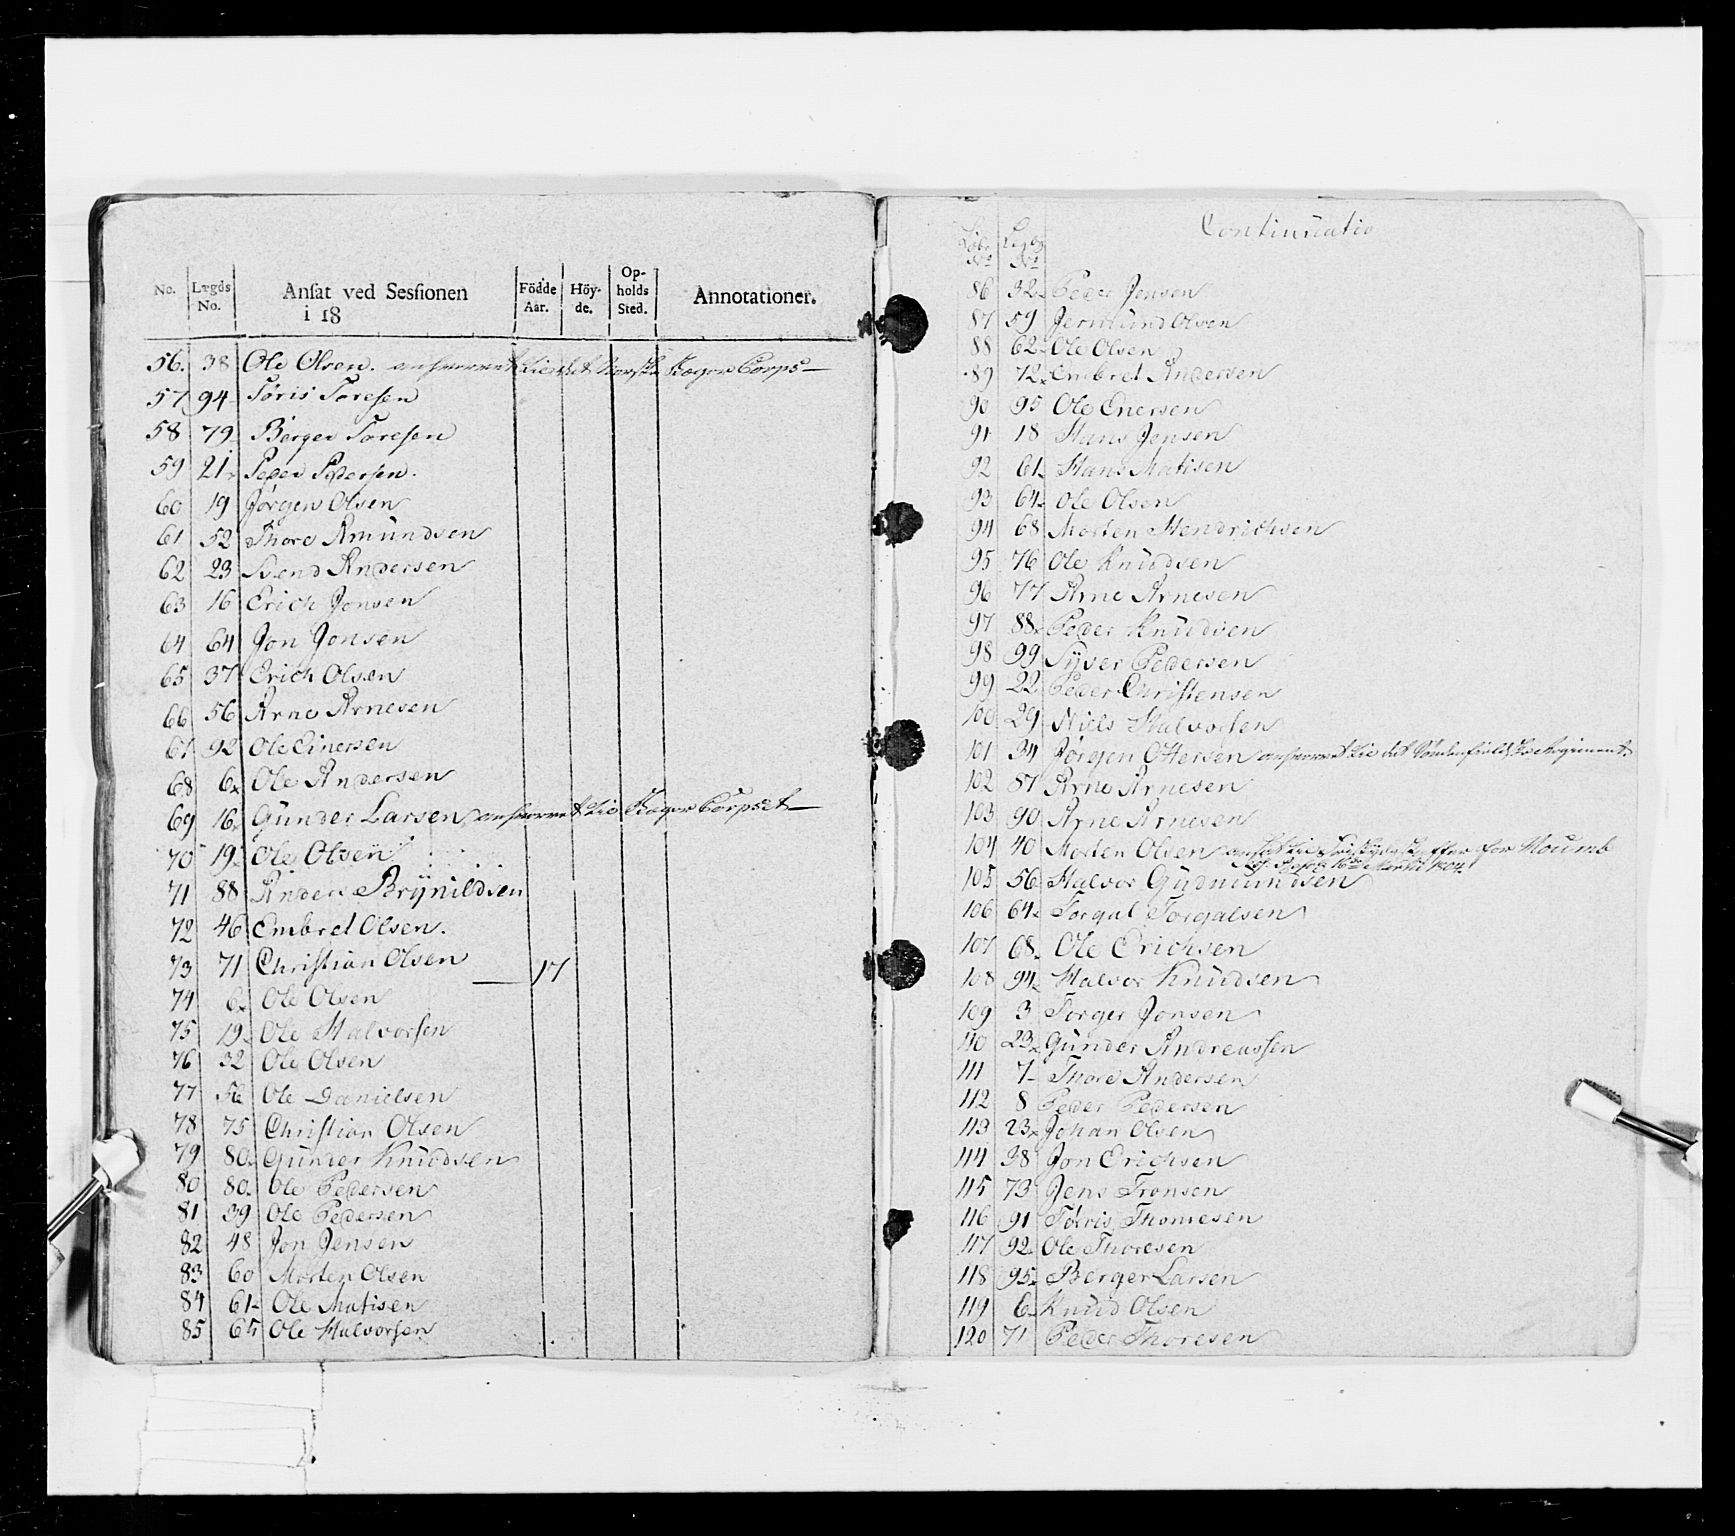 No. Lægds No. Ansat ved Sessionen i 18 Födde Aar. Höy-de. Op-holds Sted. Annotationer.
56. 38 Ole Olsen. det Norske Jæger Corps
57 94 Töris Toresen
58 79 Berger Toresen
59 21 Peder Pedersen.
60 19 Jörgen Olsen
61 52 Thore Amundsen
62 23 Svend Andersen
63 16 Erich Jonsen
64 64 Jon Jonsen
65 37 Erich Olsen
66 56 Arne Arnesen
67 92 Ole Einersen
68 6 Ole Andersen
69 16 Gunder Larsen Jæger Corpset
70 19 Ole Olsen
71 88 Anders Brÿnildsen
72 46 Embret Olsen.
73 71 Christian Olsen 17
74 6 Ole Olsen
75 19 Ole Halvorsen
76 32 Ole Olsen
77 56 Ole Danielsen
78 75 Christian Olsen
79 80 Gunder Knudsen
80 80 Ole Pedersen
81 39 Ole Pedersen
82 48 Jon Jensen
83 60 Morten Olsen
84 61 Ole Matisen
85 65 Ole Halvorsen
Continuatio
Löbe No Lægds No
86 32 Peder Jensen
87 59 Jermund Olsen
88 62 Ole Olsen
89 72 Embret Andersen
90 95 Ole Enersen
91 18 Hans Jensen
92 61 Hans Matisen
93 64 Ole Olsen
94 68 Morten Hendrichsen
95 76 Ole Knudsen
96 77 Arne Arnesen
97 88 Peder Knudsen
98 99 Syver Pedersen
99 22 Peder Christensen
100 29 Niels Halvorsen
101 34 Jörgen Ottersen det Söndenfieldske Regiment
102 87 Arne Arnesen
103 90 Arne Arnesen
104 40 Morten Olsen for
16de Martii 1804.
105 56 Halvor Gudmundsen
106 64 Torgal Torgalsen
107 68 Ole Erichsen
108 94 Halvor Knudsen
109 3 Torger Jonsen
110 23 Gunder Andreassen
111 7 Thore Andersen
112 8 Peder Pedersen
113 23 Johan Olsen
114 38 Jon Erichsen
115 73 Jens Tronsen
116 91 Törris Thomesen
117 92 Ole Thoresen
118 95 Berger Larsen
119 6 Knud Olsen
120 71 Peder Thoresen